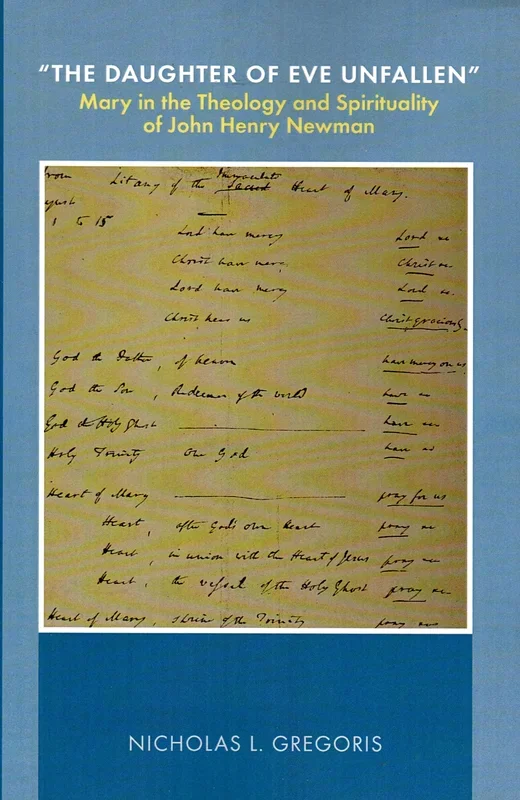 “THE DAUGHTER OF EVE UNFALLEN”
Mary in the Theology and Spirituality
of John Henry Newman
from Litany of the Immaculate Sacred Heart of Mary.
1 to 15
Lord have mercy Lord
Christ have mercy Christ
Lord have mercy Lord
Christ hear us Christ graciously
God the Father, of heaven have mercy on us
God the Son, Redeemer of the world have
God the Holy Ghost have
Holy Trinity One God have
Heart of Mary pray for us
Heart, after God's own Heart pray
Heart, in union with the Heart of Jesus pray
Heart, the vessel of the Holy Ghost pray
Heart of Mary, shrine of the Trinity pray
NICHOLAS L. GREGORIS